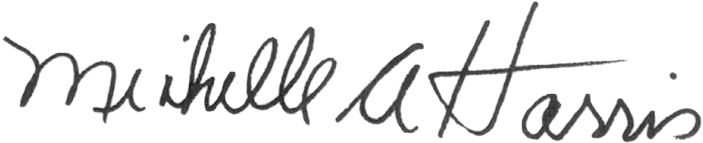 Michelle A Harris